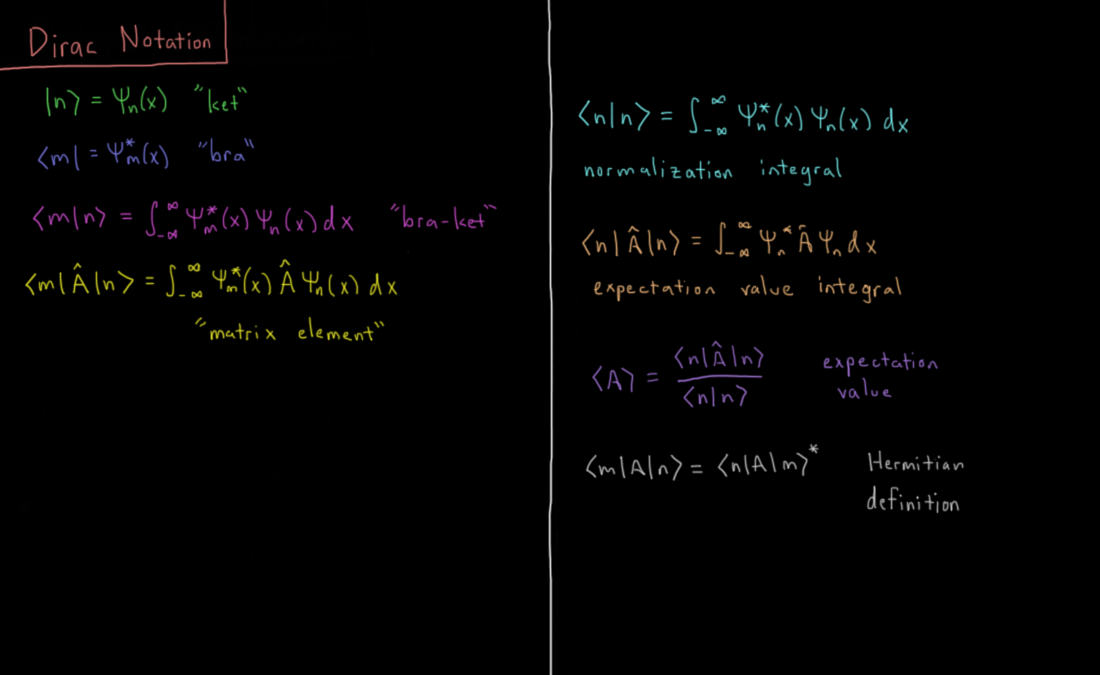 Dirac Notation
|n⟩ = Ψₙ(x) "ket"
⟨m| = Ψₘ*(x) "bra"
⟨m|n⟩ = ∫₋∞^∞ Ψₘ*(x) Ψₙ(x) dx "bra-ket"
⟨m|Â|n⟩ = ∫₋∞^∞ Ψₘ*(x) Â Ψₙ(x) dx
"matrix element"
⟨n|n⟩ = ∫₋∞^∞ Ψₙ*(x) Ψₙ(x) dx
normalization integral
⟨n|Â|n⟩ = ∫₋∞^∞ Ψₙ* Â Ψₙ dx
expectation value integral
⟨A⟩ = ⟨n|Â|n⟩ / ⟨n|n⟩ expectation
value
⟨m|A|n⟩ = ⟨n|A|m⟩* Hermitian
definition